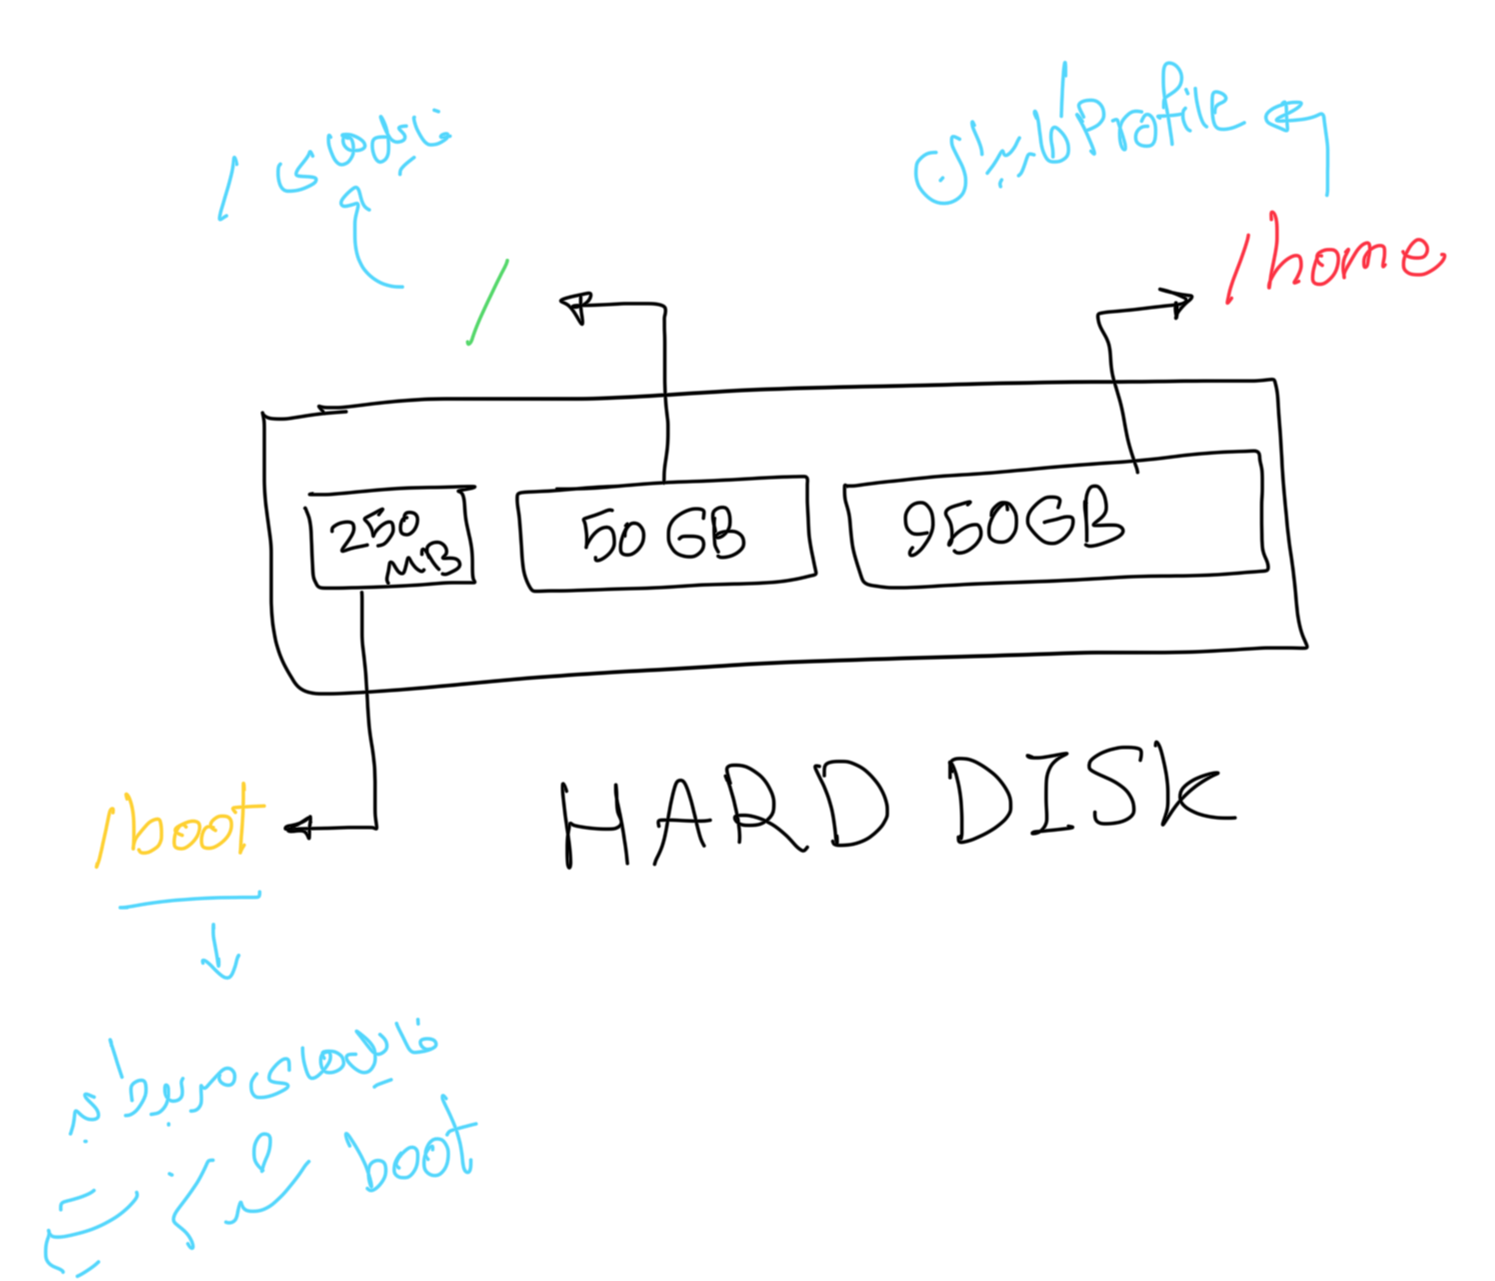 فایل‌های /
Profile کاربران
/
/home
250
MB
50 GB
950GB
/boot
HARD DISK
فایل‌های مربوط به
boot شدن